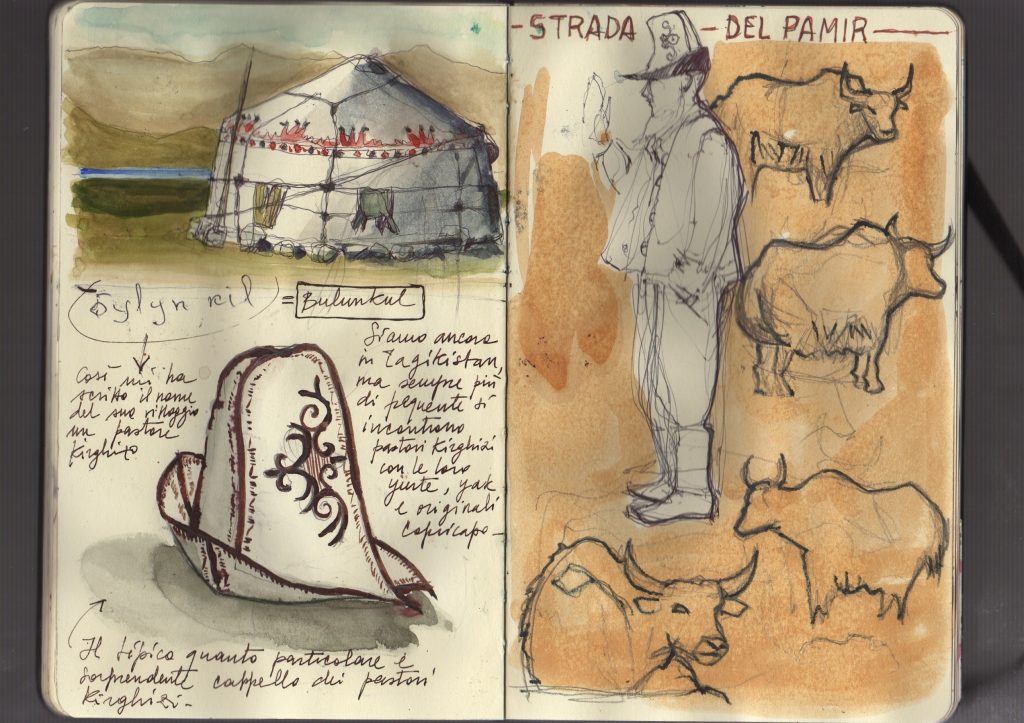 -STRADA - DEL PAMIR-
= Bulunkul
Così mi ha
scritto il nome
del suo villaggio
un pastore
Kirghizo
Siamo ancora
in Tagikistan,
ma sempre più
di frequente si
incontrono
pastori Kirghisi
con le loro
yurte, yak
e originali
copricapo-
Il tipico quanto particolare e
sorprendente cappello dei pastori
Kirghisi-